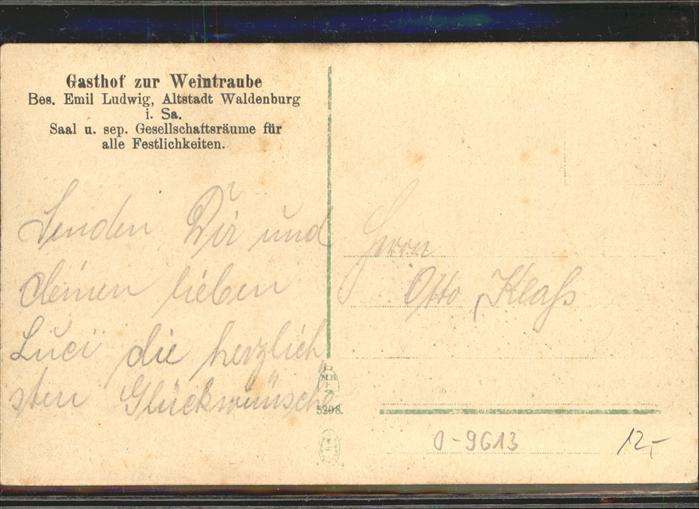 Gasthof zur Weintraube
Bes. Emil Ludwig, Altstadt Waldenburg
i. Sa.
Saal u. sep. Gesellschaftsräume für
alle Festlichkeiten.
Senden Dir und
deinen lieben
Luci die herzlich
sten Glückwünsche
Herrn
Otto Klaß
5298.
0-9613
12,-